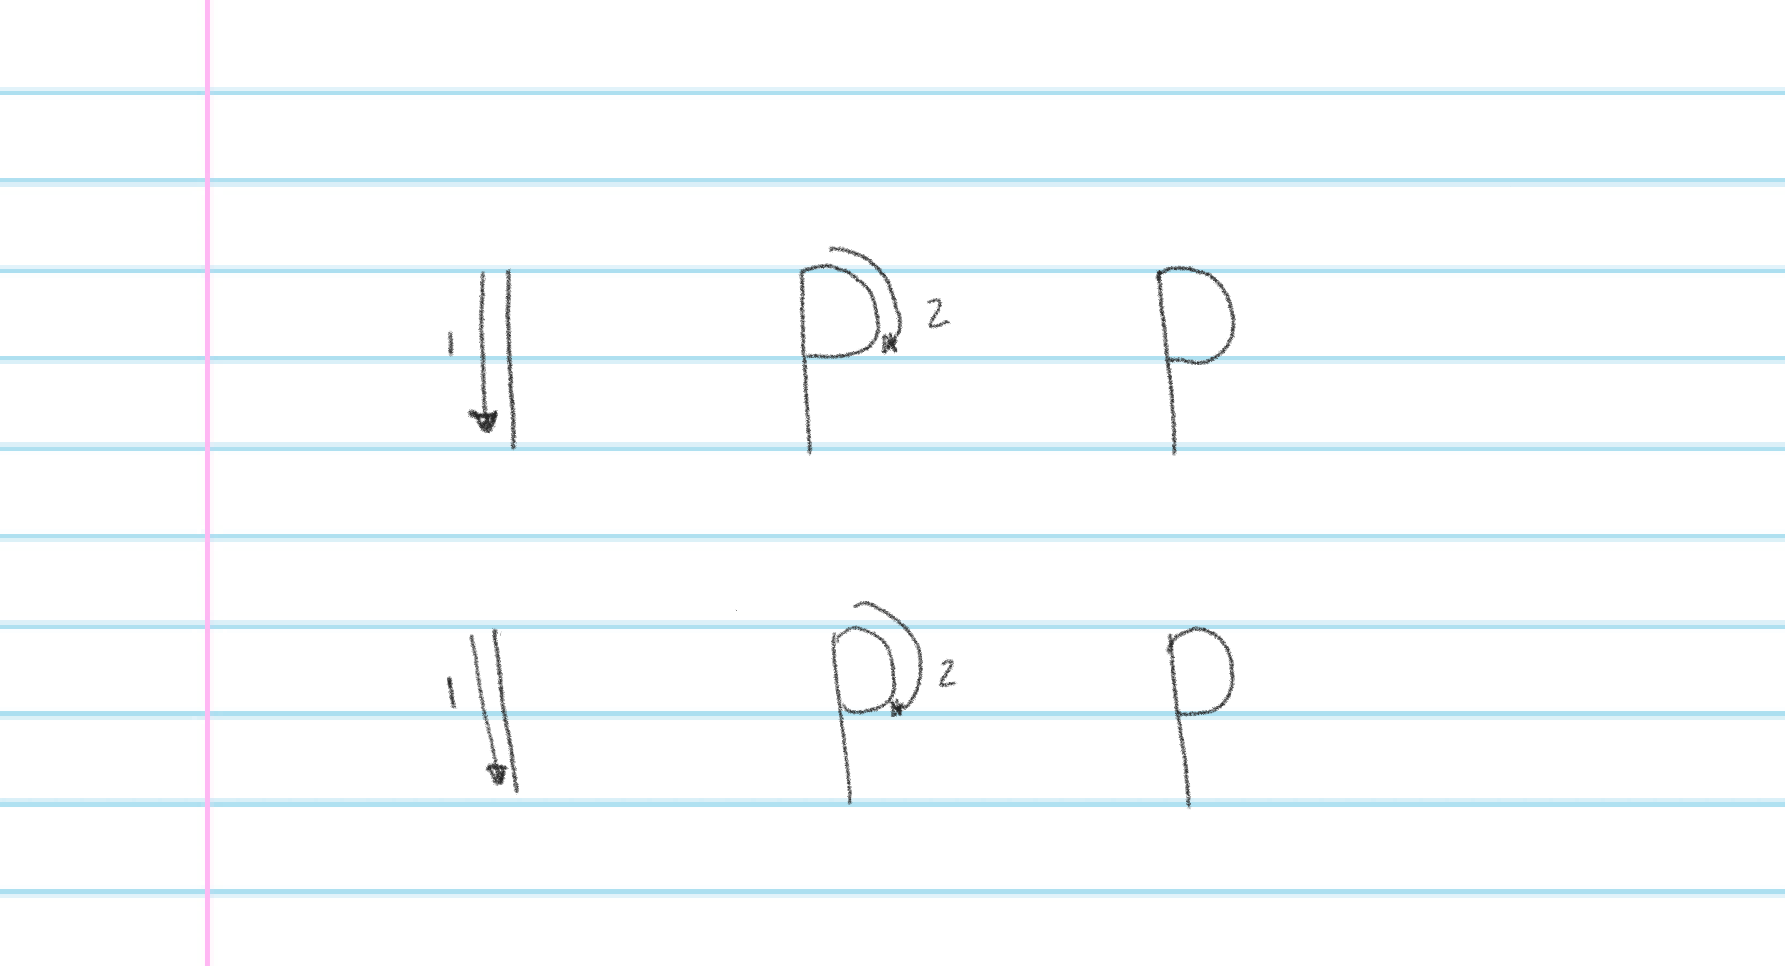 1 P 2 P
1 p 2 p